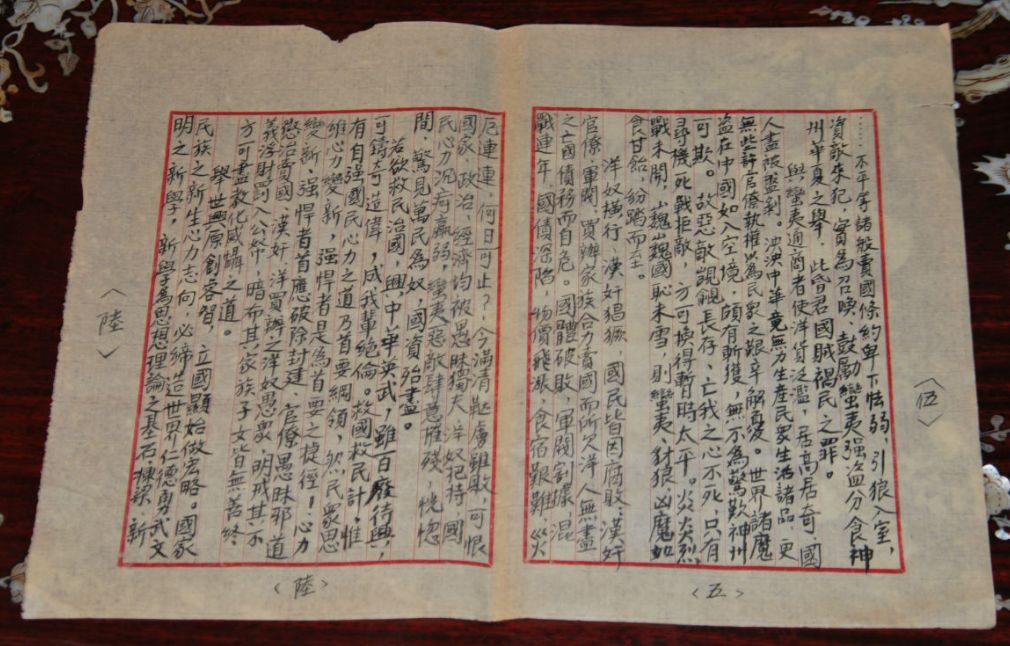 〈伍〉
……不平等諸般賣國條約卑下怯弱，引狼入室，
資敵來犯，實為召喚、鼓勵蠻夷强盜分食神
州華夏之舉，此皆君國賊禍民之罪。
與蠻夷通商者使洋貨泛濫，居高居奇，國
人盡被盤剝。泱泱中華竟無力生產民衆生活諸品，更
無些許官僚執權以為民衆之艱辛解憂。世界諸魔
盜在中國如入空境，頗有斬獲，無不為驚歎神州
可欺。故惡敵覬覦長存，亡我之心不死，只有
尋機死戰拒敵，方可換得暫時太平。炎炎烈
戰未開，巍巍國恥未雪，則蠻夷、豺狼凶魔如
食甘飴，紛踏而至。
洋奴橫行，漢奸猖獗，國民皆因腐敗、漢奸
官僚、軍閥、買辦家族合力賣國而所欠洋人無盡
之亡國債務而自危。國體破敗，軍閥割據，混
戰連年，國債深陷，物價飛漲，食宿艱難，災
〈五〉
厄連連，何日可止？今滿清韃虜雖敗，可恨
國家、政治、經濟均被愚昧獨夫、洋奴把持，國
民心力沉疴羸弱，蠻夷惡敵肆意摧殘，恍惚
間，驚見萬民為奴，國資殆盡。
若欲救民治國，興中華英武，雖百廢待興，
可鑄奇道偉，咸我輩絶倫。救國救民計，惟
有自强國民心力之道乃首要綱領，然民衆思
維心力變新，强悍者是為首要之捷徑！心力
變新，强悍者首應破除封建、官僚愚昧邪道
懲治賣國、漢奸、洋買辦之洋奴愚衆，明戒其不
義浮財罰入公帑，暗布其家族子女皆無善終
方可盡教化威懾之道。
舉世興原創睿智，立國顯始做宏略。國家
民族之新生心力志向，必締造世界仁德勇武文
明之新學，新學為思想理論之基石棟梁，新
〈陸〉
〈陸〉